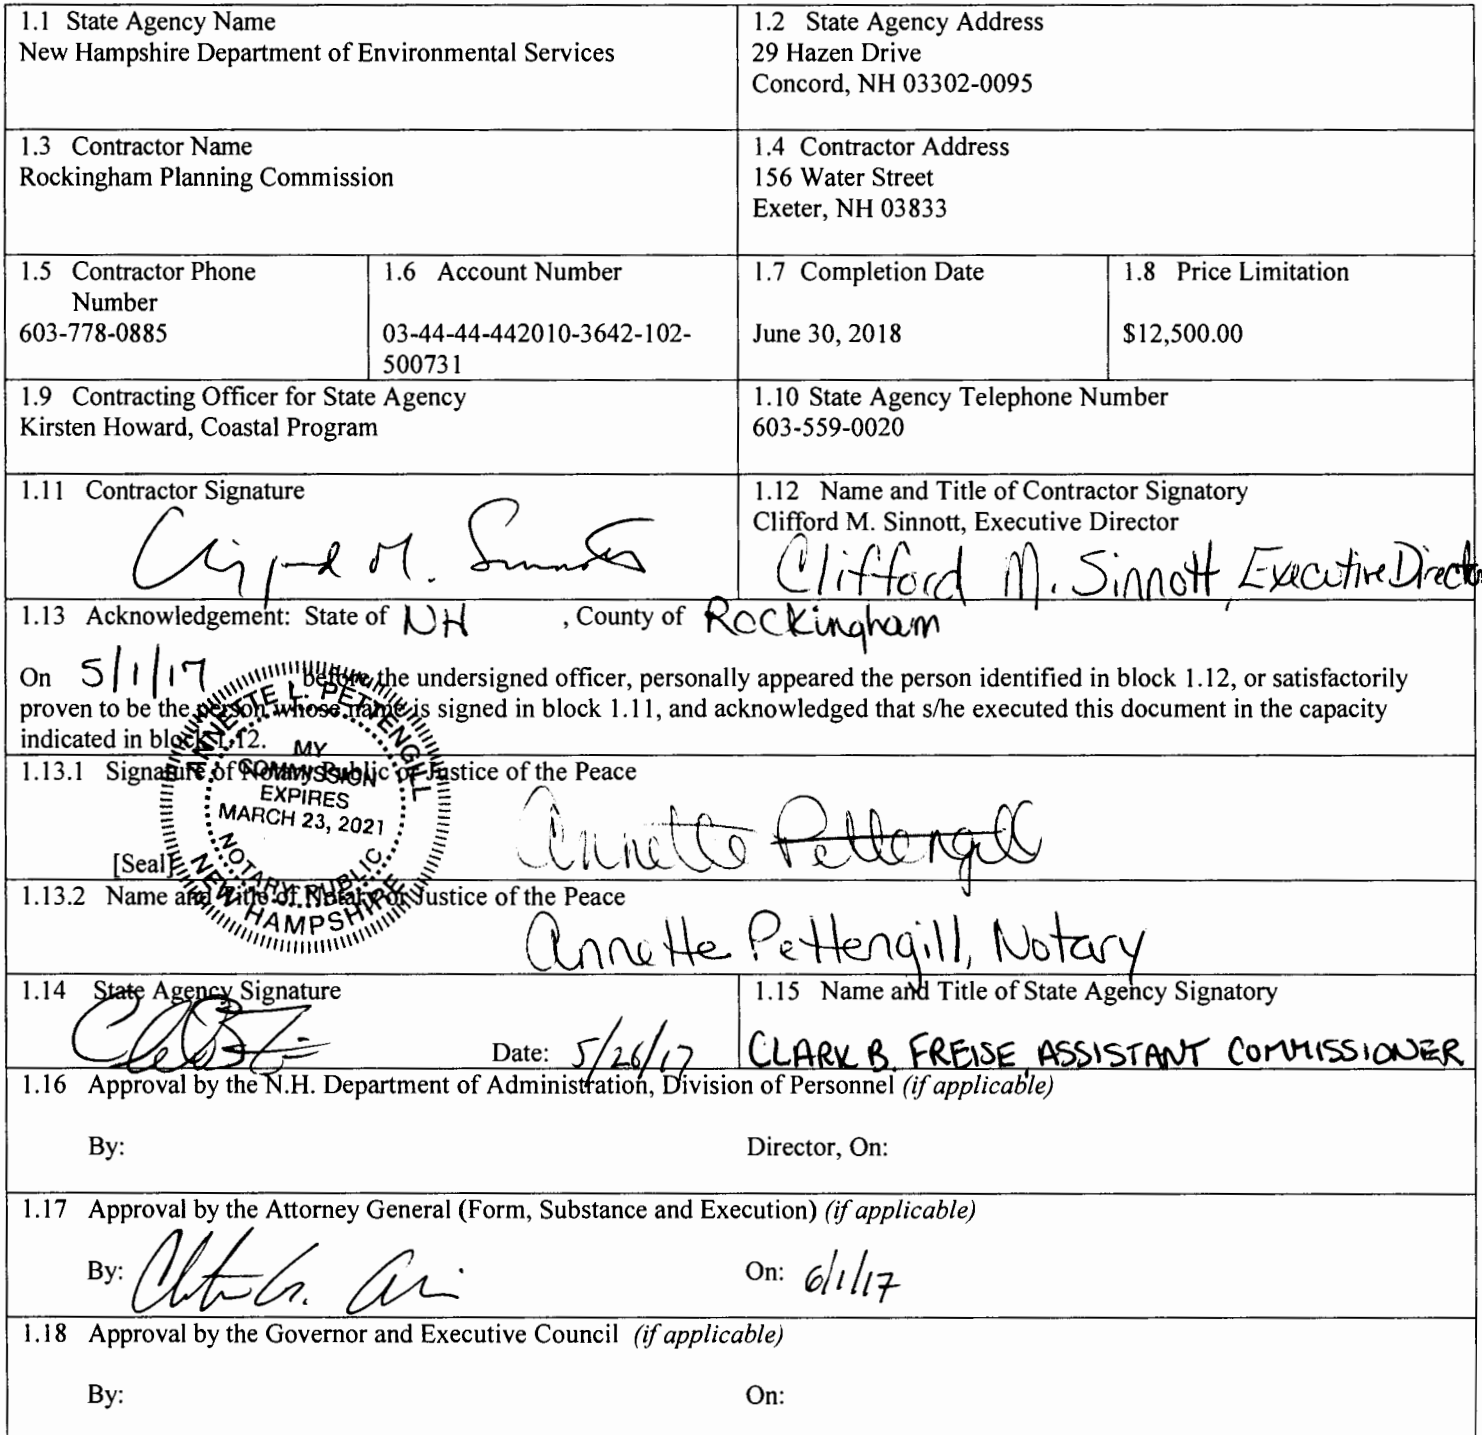 1.1 State Agency Name
New Hampshire Department of Environmental Services
1.2 State Agency Address
29 Hazen Drive
Concord, NH 03302-0095
1.3 Contractor Name
Rockingham Planning Commission
1.4 Contractor Address
156 Water Street
Exeter, NH 03833
1.5 Contractor Phone
Number
603-778-0885
1.6 Account Number
03-44-44-442010-3642-102-
500731
1.7 Completion Date
June 30, 2018
1.8 Price Limitation
$12,500.00
1.9 Contracting Officer for State Agency
Kirsten Howard, Coastal Program
1.10 State Agency Telephone Number
603-559-0020
1.11 Contractor Signature
Clifford M. Sinnott
1.12 Name and Title of Contractor Signatory
Clifford M. Sinnott, Executive Director
Clifford M. Sinnott, Executive Director
1.13 Acknowledgement: State of NH , County of Rockingham
On 5/1/17 before the undersigned officer, personally appeared the person identified in block 1.12, or satisfactorily
proven to be the person whose name is signed in block 1.11, and acknowledged that s/he executed this document in the capacity
indicated in block 1.12.
1.13.1 Signature of Notary Public or Justice of the Peace
Annette Pettengill
[Seal]
ANNETTE L. PETTENGILL
MY
COMMISSION
EXPIRES
MARCH 23, 2021
NOTARY PUBLIC
NEW HAMPSHIRE
1.13.2 Name and Title of Notary or Justice of the Peace
Annette Pettengill, Notary
1.14 State Agency Signature
Date: 5/26/17
1.15 Name and Title of State Agency Signatory
CLARK B. FREISE, ASSISTANT COMMISSIONER
1.16 Approval by the N.H. Department of Administration, Division of Personnel (if applicable)
By: Director, On:
1.17 Approval by the Attorney General (Form, Substance and Execution) (if applicable)
By: On: 6/1/17
1.18 Approval by the Governor and Executive Council (if applicable)
By: On: